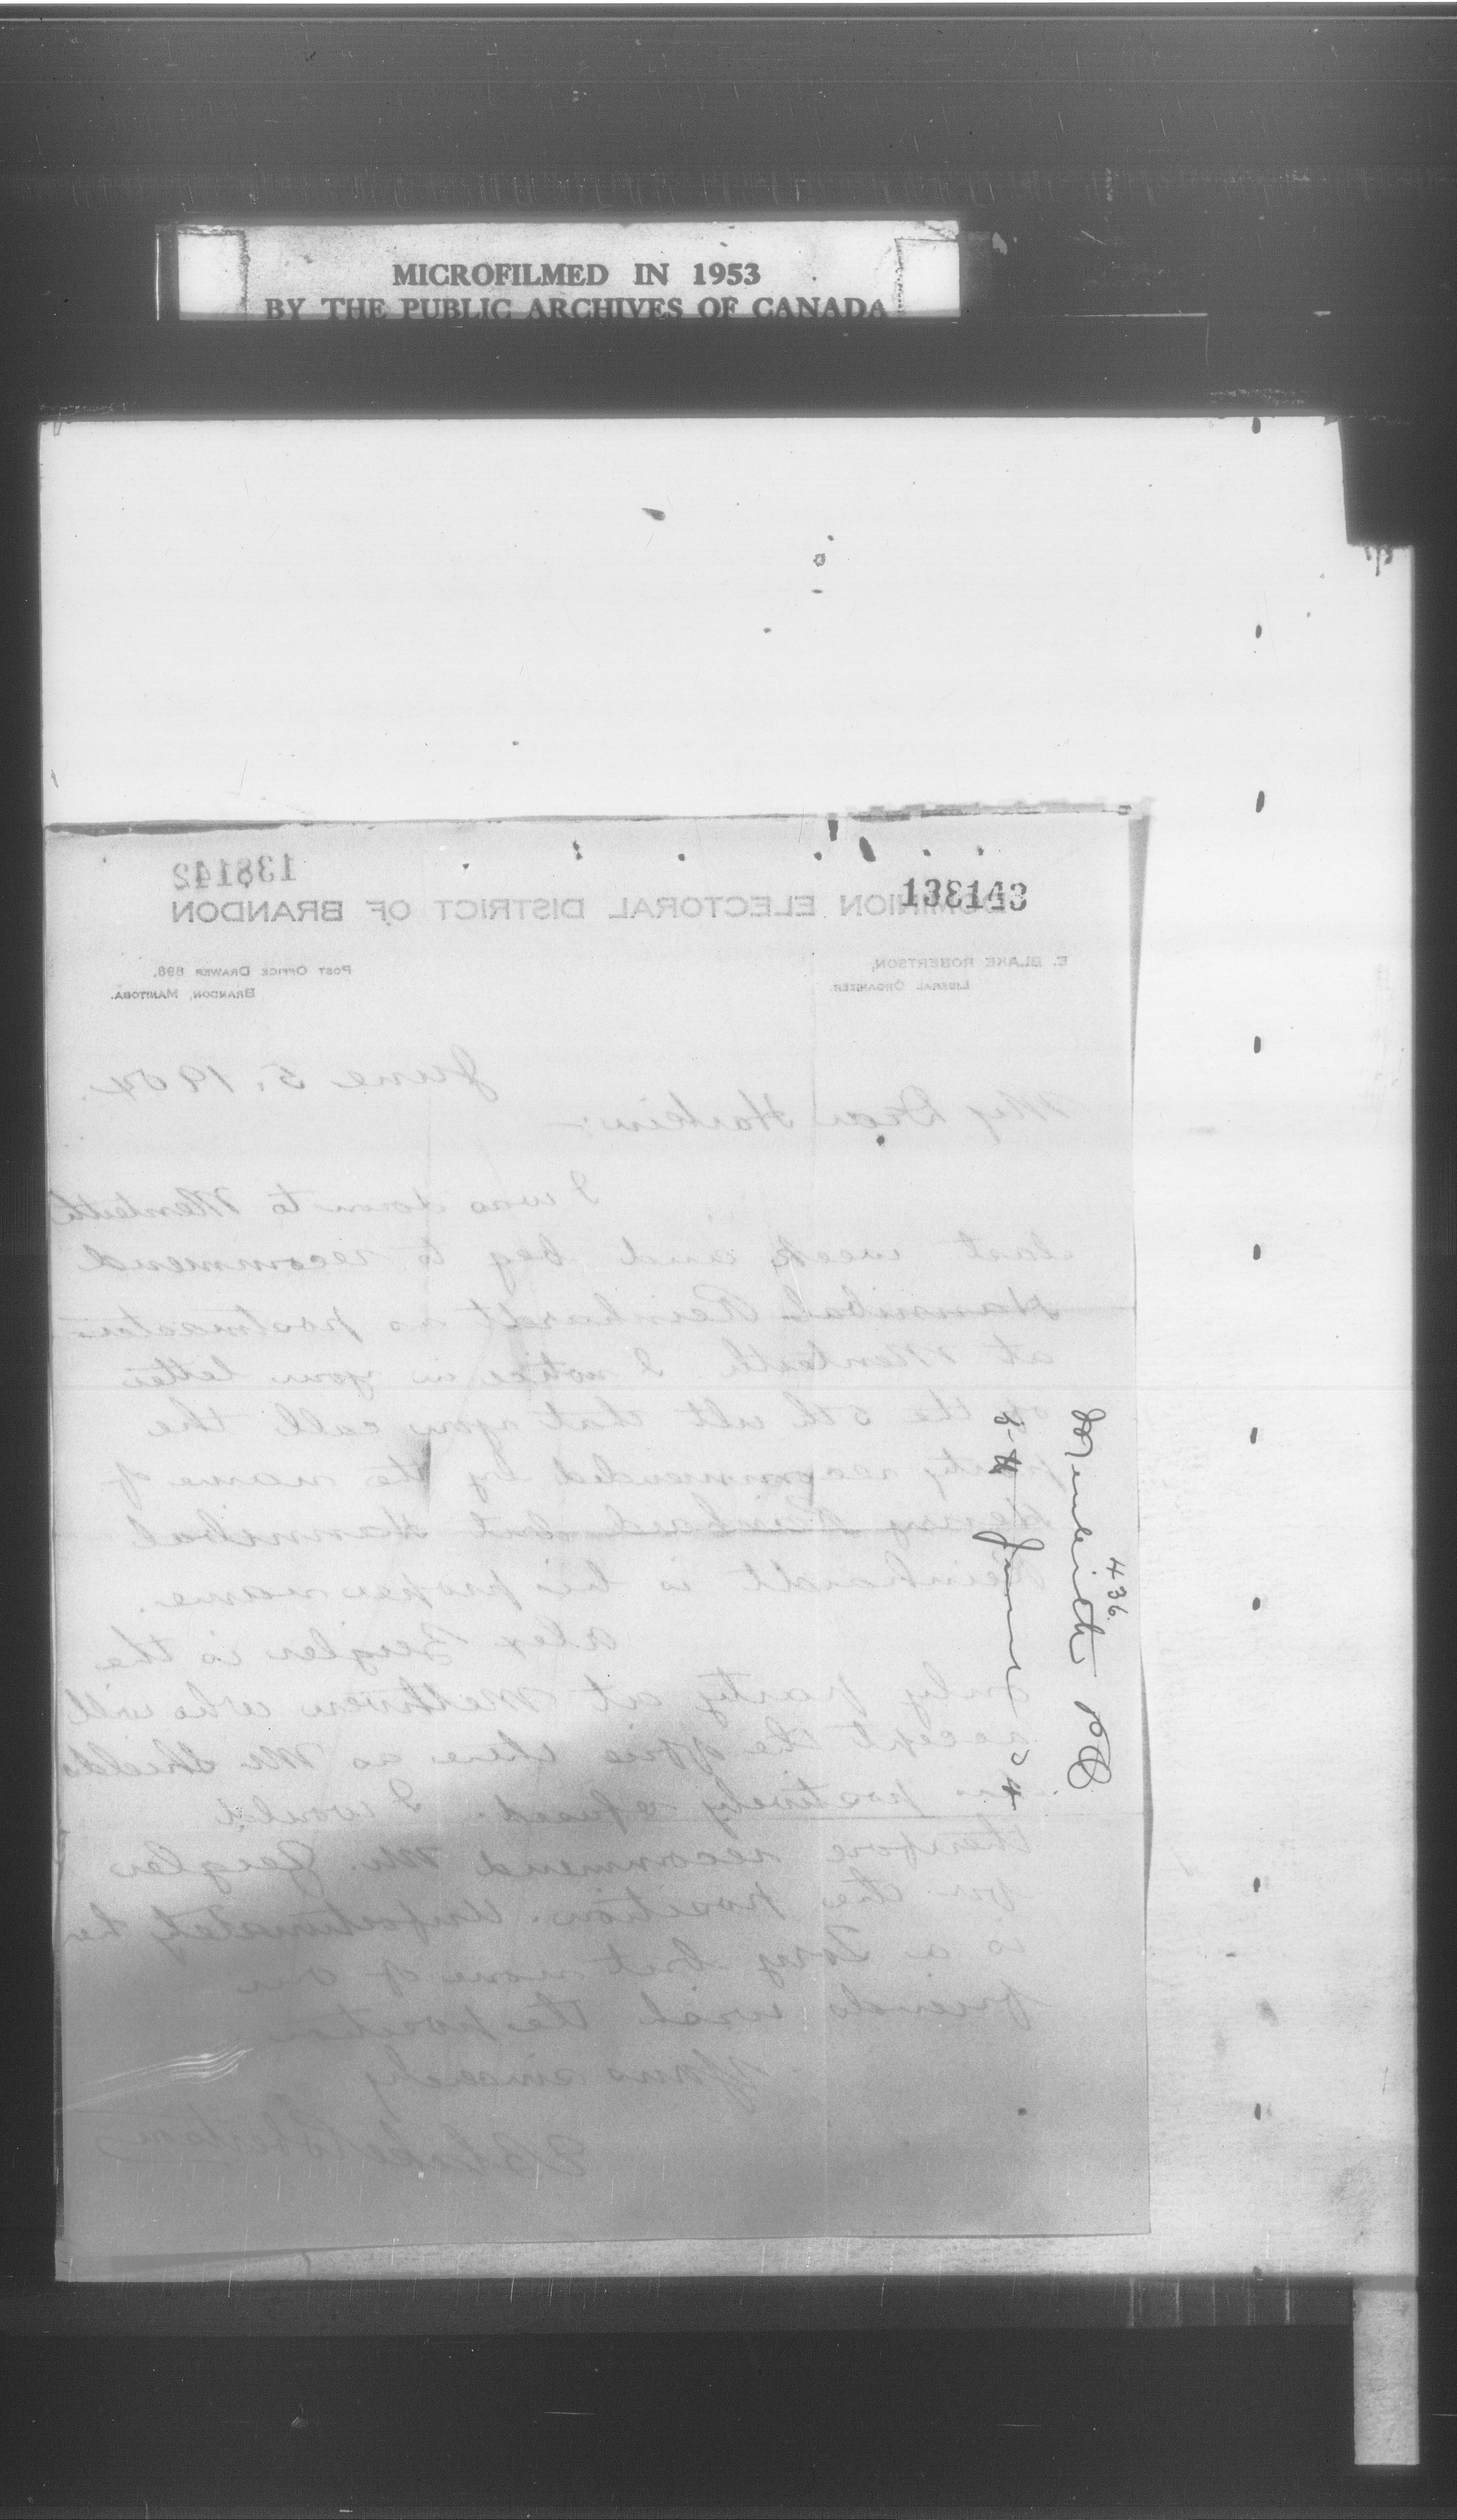 MICROFILMED IN 1953
BY THE PUBLIC ARCHIVES OF CANADA
138142
138143
DOMINION ELECTORAL DISTRICT OF BRANDON
E. BLAKE ROBERTSON,
LIBERAL ORGANIZER.
POST OFFICE DRAWER 898,
BRANDON, MANITOBA.
June 5, 1904.
My Dear Harkin:-
I was down to Menteith
last week and beg to recommend
Hannibal Reinhardt as postmaster
at Menteith. I notice in your letter
of the 5th ult that you call the
party recommended by the name of
Henry but Hannibal
Reinhardt is his proper name.
Alex Zeigler is the
only party at Methven who will
accept the office there as Mr Shields
positively refused. I would
therefore recommend Mr. Zeigler
for the position. Unfortunately he
is a Tory but none of our
friends wish the position
Yours sincerely
E Blake Robertson
436
Menteith P.O.
5 June 04